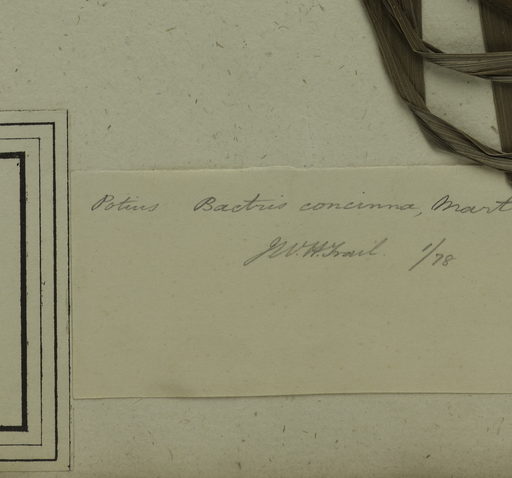 Potius Bactris concinna, Mart
J.W.H. Trail. 1/78